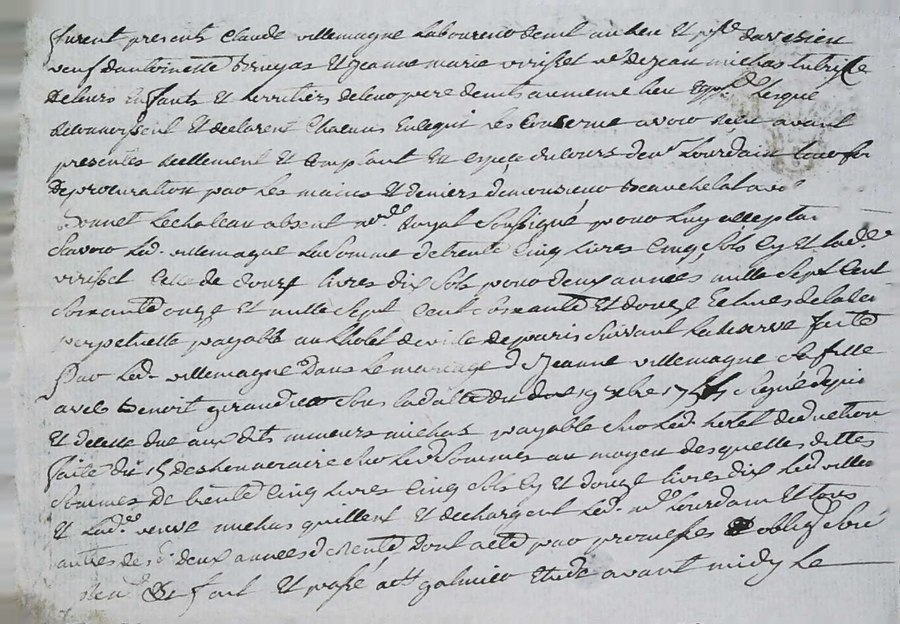 furent presents Claude villemagne Laboureur dem.t au lieu et p.sse d'avesieu
veuf dantoinette et jeanne marie virisset ve de jean michas tutrice
de leurs Enfants et herritiers de leur pere dem.ts au meme lieu lesquels
reconnoissent et declarent Chacuns En ce qui les Conserne avoir recu avant
presentes reellement et comptant En espece du cours de m.r Lourdain
de procuration par les mains et deniers de monsieur
Bonnet Lechateau absent n.re Royal Soussigné pour luy acceptant
scavoir Led. villemagne La Somme de trente Cinq livres Cinq Sols Cy et lad.e
virisset Celle de douze livres dix Sols pour deux années mille Sept Cent
soixante onze et mille Sept Cent soixante et douze Echues de la
perpetuelle payable au L'hotel de ville de paris Suivant La reserve faite
Par Led. villemagne dans Le mariage de Jeanne villemagne Sa fille
avec Benoit giraud Sous la datte du
et de celle due aux dits mineurs michas payable Sur Led. hotel deduction
faite du 15 des honnoraire Sur Led. Sommes au moyen des quelles dittes
sommes de trente Cinq livres Cinq Sols Cy et douze livres dix Led. ville
et Lad.e veuve michas quittent et dechargent Led. m.r Lourdain et tous
autres de deux années de rente Dont acte par promesses oblig.
fait et passé a S.t galmier Etude avant midy Le